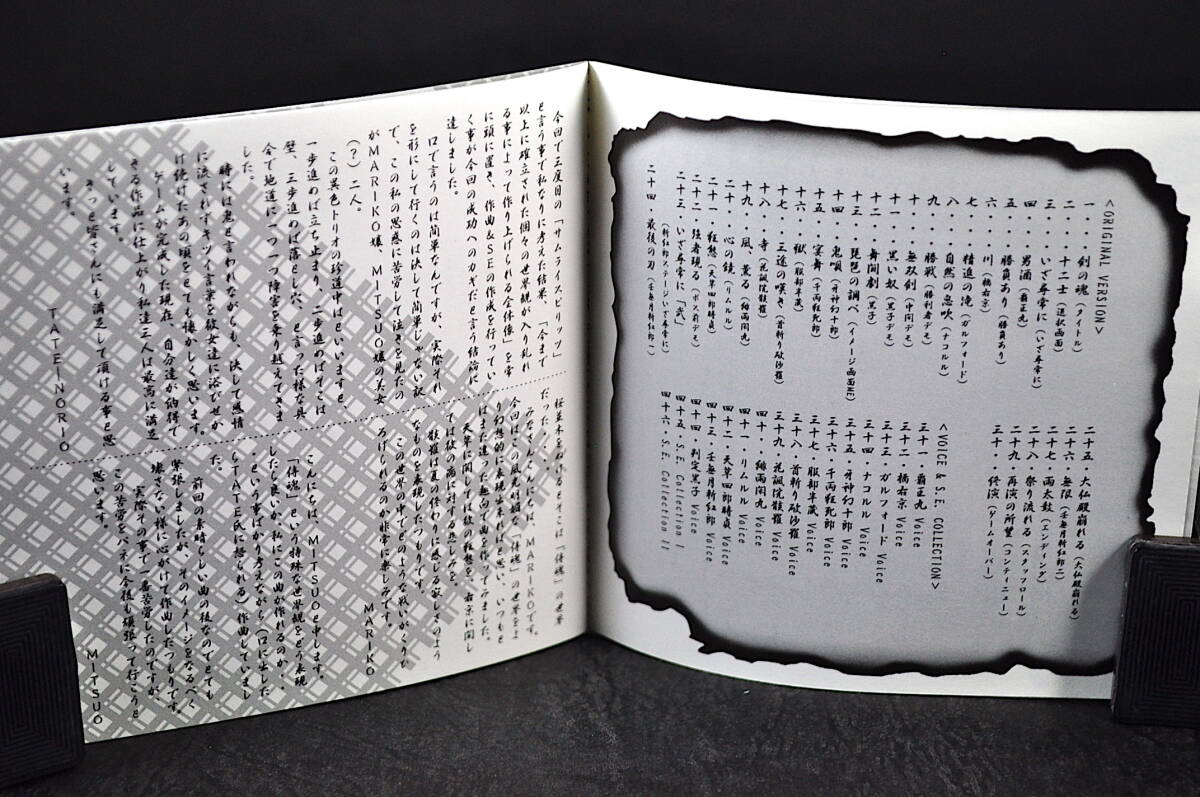 <ORIGINAL VERSION>
一・・・剣の魂(タイトル)
二・・・十二士(選択画面)
三・・・いざ尋常に(いざ尋常に)
四・・・男酒(覇王丸)
五・・・勝負あり(勝負あり)
六・・・川(橘右京)
七・・・精進の滝(ガルフォード)
八・・・自然の息吹(ナコルル)
九・・・勝戦(勝利者デモ)
十・・・無双剣(中間デモ)
十一・・黒い奴(黒子デモ)
十二・・舞闘劇(黒子)
十三・・琵琶の調べ(イメージ画面ME)
十四・・鬼唄(牙神幻十郎)
十五・・宴舞(千両狂死郎)
十六・・獄(服部半蔵)
十七・・三途の嘆き(首斬り破沙羅)
十八・・寺(花諷院骸羅)
十九・・風、薫る(緋雨閑丸)
二十・・心の鏡(リムルル)
二十一・狂愁(天草四郎時貞)
二十二・強者現る(ボス前デモ)
二十三・いざ尋常に「弐」
(斬紅郎ステージいざ尋常に)
二十四 最後の刃(壬無月斬紅郎一)
二十五・大仏殿崩れる(大仏殿崩れる)
二十六・無限(壬無月斬紅郎二)
二十七・雨太鼓(エンディング)
二十八・祭り流れる(スタッフロール)
二十九・再演の所望(コンティニュー)
三十・・終演(ゲームオーバー)
<VOICE & S.E. COLLECTION>
三十一・覇王丸 Voice
三十二・橘右京 Voice
三十三・ガルフォード Voice
三十四・ナコルル Voice
三十五・牙神幻十郎 Voice
三十六・千両狂死郎 Voice
三十七・服部半蔵 Voice
三十八・首斬り破沙羅 Voice
三十九・花諷院骸羅 Voice
四十・・緋雨閑丸 Voice
四十一・リムルル Voice
四十二・天草四郎時貞 Voice
四十三・壬無月斬紅郎 Voice
四十四・判定黒子 Voice
四十五・S.E. Collection I
四十六・S.E. Collection II
今回で三度目の「サムライスピリッツ」
と言う事で私なりに考えた結果、「今まで
以上に確立された個々の世界観が入り乱れ
る事によって作り上げられる全体像」を常
に頭に置き、作曲&SEの作成を行ってい
く事が今回の成功へのカギだと言う結論に
達しました。
口で言うのは簡単なんですが、実際それ
を形にして行くのは決して簡単じゃない訳
で、この私の思惑に苦労して泣きを見たの
がMARIKO嬢、MITSUO嬢の美女
(?)二人。
この異色トリオの珍道中はといいますと
一歩進めば立ち止まり、二歩進めばそこは
壁、三歩進めば落とし穴、と言った様な具
合で地道に一つ一つ障害を乗り越えてきま
した。
時には鬼と言われながらも、決して感情
に流されずキツイ言葉を彼女達に浴びせか
け続けたあの頃をとても懐かしく思います。
ゲームが完成した現在、自分達が納得で
きる作品に仕上がり私達三人は最高に満足
しています。
きっと皆さんにも満足して頂ける事と思
います。
TATEINORIO
桜並木をぬけるとそこは「侍魂」の世界
だった・・。
みなさんこんにちは、MARIKOです。
今回はこの風光明媚な「侍魂」の世界をよ
り幻想的に表現出来ればと思い、いつもと
はまた違った趣向で曲を作ってみました。
天草に関しては彼の狂愁を、右京に関し
ては彼の病に対する悲しみを、
骸羅は夏の終わりに感じる寂しさのよう
なものを表現したつもりです。
この世界の中でどのような戦いがくりひ
ろげられるのか非常に楽しみです。
MARIKO
こんにちは、MITSUOと申します。
「侍魂」という特殊な世界観をどう表現
したら良いか、私にこの曲が作れるのか・
・という事ばかり考えながら(口に出した
らTATE氏に怒られる)作曲してまし
た。
前回の素晴らしい曲の後なのでとても
緊張しましたが、そのイメージをなるべく
壊さない様に心がけて作曲したつもりです。
実際その事で一番苦労したのですが、
この苦労をバネに今後も頑張って行こうと
思います。
MITSUO